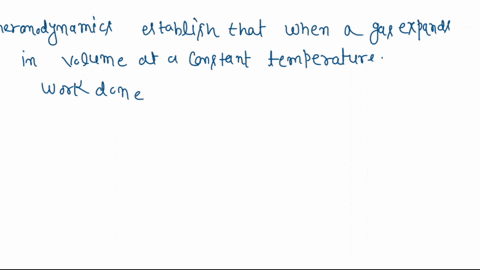 hermodynamics establish that when a gas expands
in volume at a constant temperature.
work done